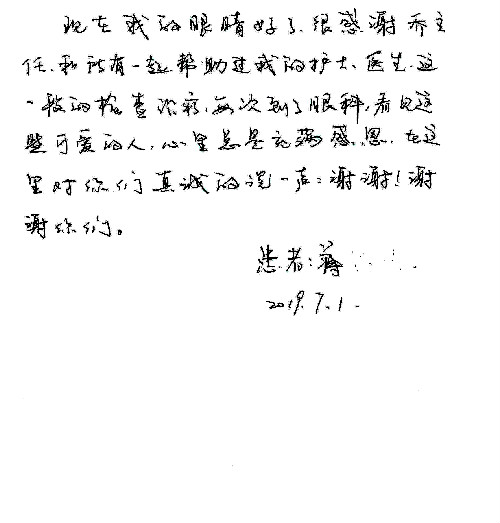 现在我的眼睛好了,很感谢乔主
任,和所有一起帮助过我的护士、医生,这
一段的检查治疗,每次到了眼科,看见这
些可爱的人,心里总是充满感恩,在这
里对你们真诚的说一声:谢谢!谢
谢你们。
患者:蒋
2019.7.1.